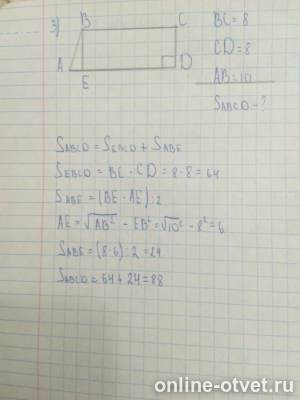 3)
B C
A D
E
BC = 8
CD = 8
AB = 10
SABCD - ?
SABCD = SEBCD + SABE
SEBCD = BC · CD = 8 · 8 = 64
SABE = (BE · AE) : 2
AE = √AB² - EB² = √10² - 8² = 6
SABE = (8 · 6) : 2 = 24
SABCD = 64 + 24 = 88
online-otvet.ru